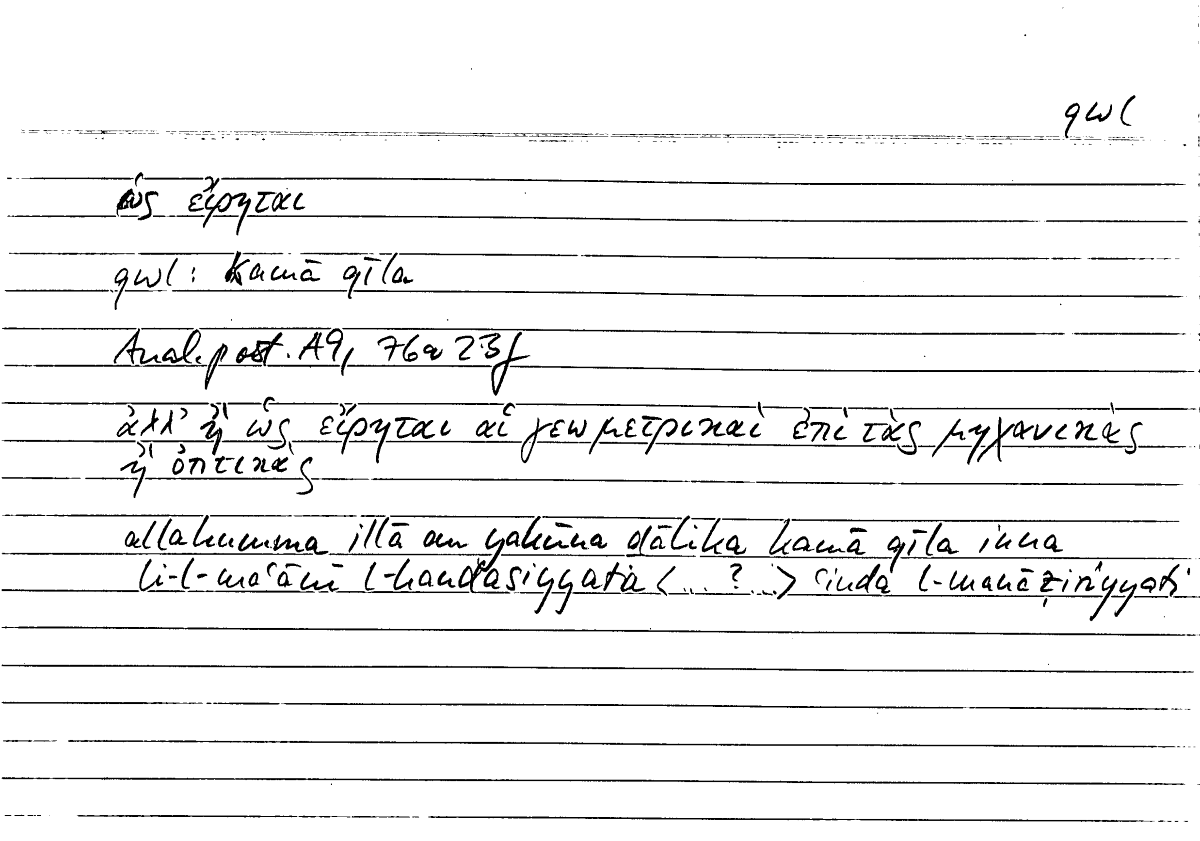 qwl
ὡς εἴρηται
qwl: kamā qīla
Anal. post. A9, 76a23f
ἀλλ' ἢ ὡς εἴρηται αἱ γεωμετρικαὶ ἐπὶ τὰς μηχανικὰς
ἢ ὀπτικὰς
allahumma illā an yakūna ḏālika kamā qīla inna
li-l-maʿānī l-handasiyyata <...?...> ʿinda l-manāẓiriyyati